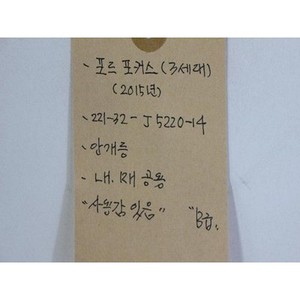 - 포르 포커스 (3세대)
(2015년)
- 221-32- J5220-14
- 안개등
- LH. RH 공용
"사용감 있음" "B급.